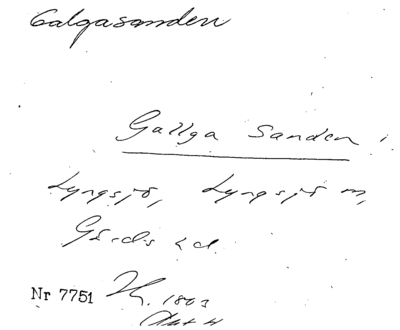 Galgasanden
Gallga Sanden
Lyngsjö, Lyngsjö sn,
Gärds hd.
Nr 7751 1803
Akt